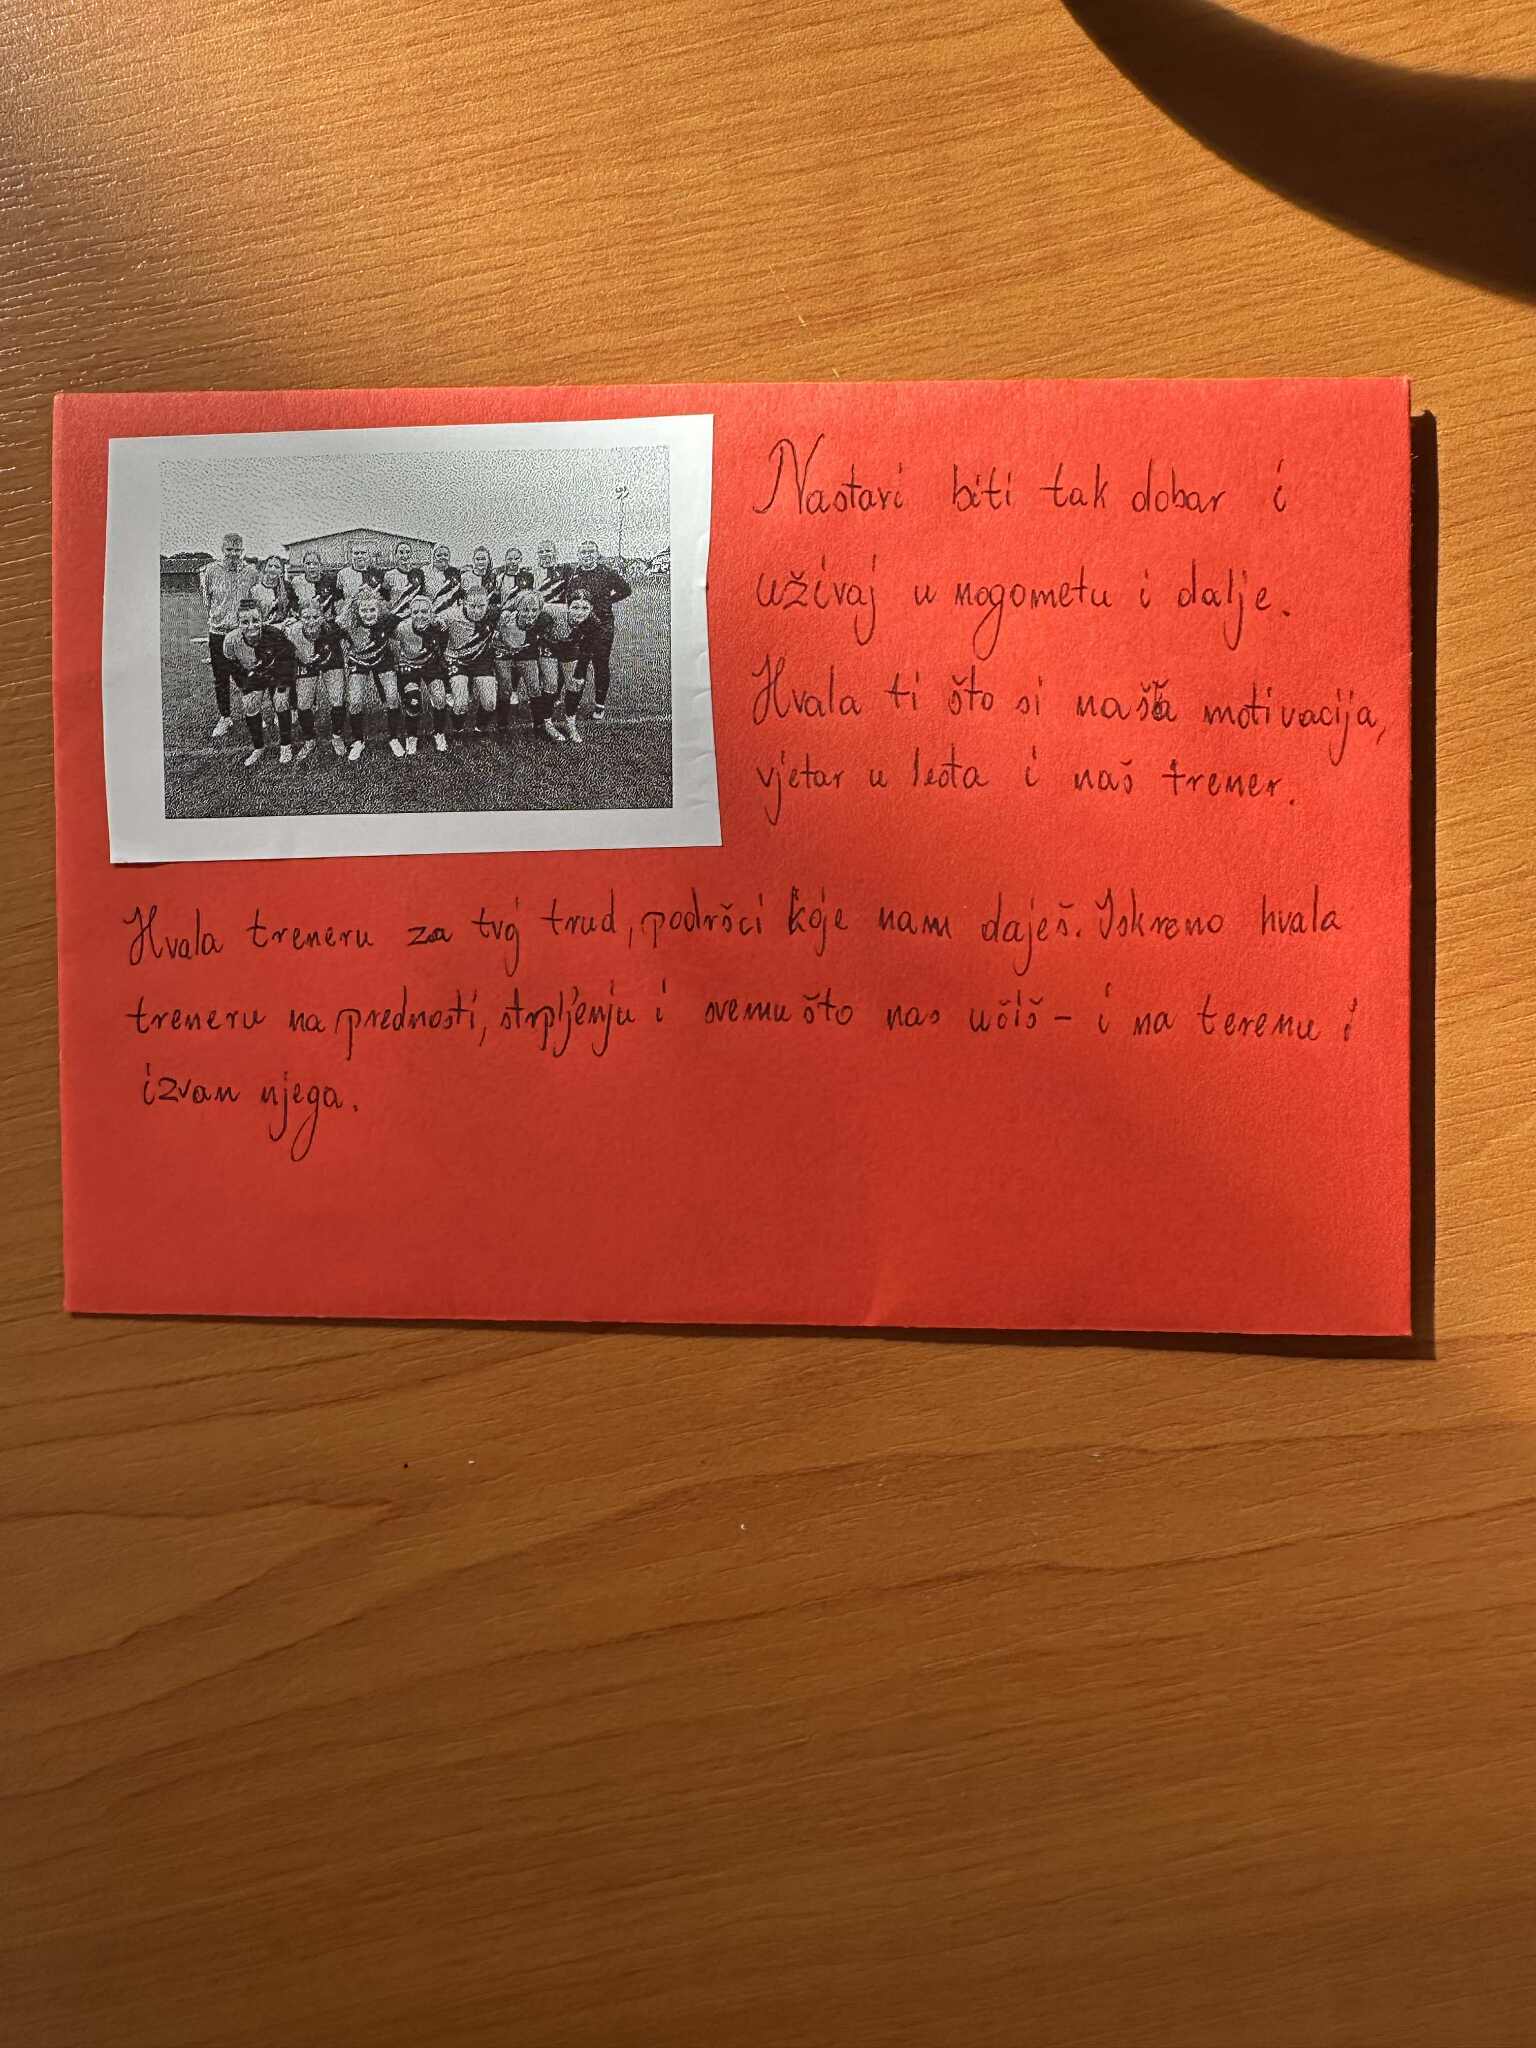 Nastavi biti tak dobar i
uživaj u nogometu i dalje.
Hvala ti što si naša motivacija,
vjetar u leđa i naš trener.
Hvala treneru za tvj trud, podršci koje nam daješ. Iskreno hvala
treneru na prednosti, strpljenju i svemu što nas učiš - i na terenu i
izvan njega.